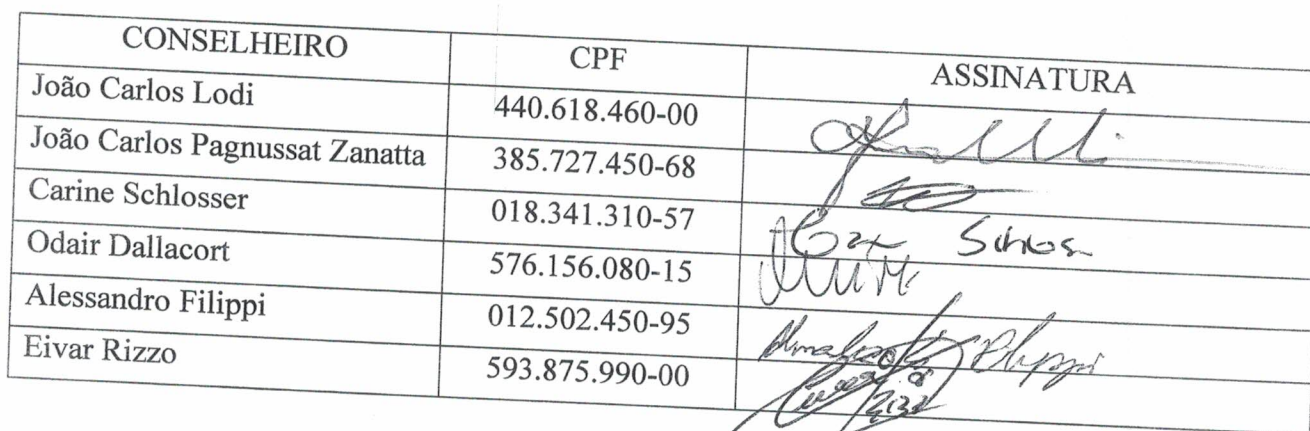 CONSELHEIRO CPF ASSINATURA
João Carlos Lodi 440.618.460-00
João Carlos Pagnussat Zanatta 385.727.450-68
Carine Schlosser 018.341.310-57
Odair Dallacort 576.156.080-15
Alessandro Filippi 012.502.450-95
Eivar Rizzo 593.875.990-00